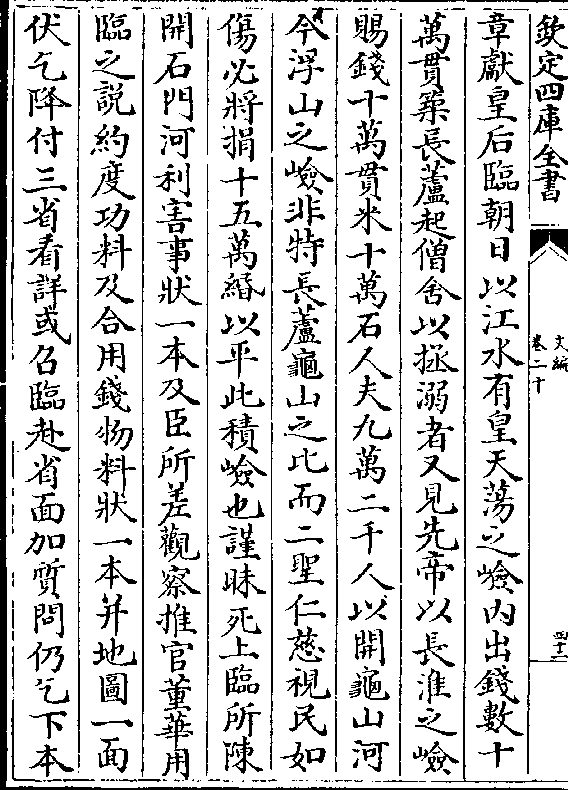 欽定四庫全書
文編
卷二十
四十二
章獻皇后臨朝日以江水有皇天蕩之嶮内出錢數十
萬貫築長蘆起僧舍以拯溺者又見先帝以長淮之嶮
賜錢十萬貫米十萬石人夫九萬二千人以開龜山河
今浮山之嶮非特長蘆龜山之比而二聖仁慈視民如
傷必將捐十五萬緡以平此積嶮也謹昧死上臨所陳
開石門河利害事狀一本及臣所差觀察推官董華用
臨之説約度功料及合用錢物料狀一本并地圖一面
伏乞降付三省看詳或召臨赴省面加質問仍乞下本